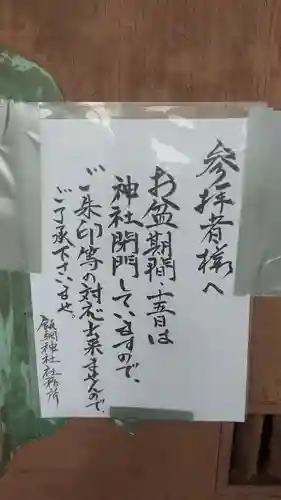 参拝者様へ
お盆期間・十五日は
神社閉門していますので、
ご朱印等の対応出来ませんので、
ご了承下さいませ。
神社 社務所